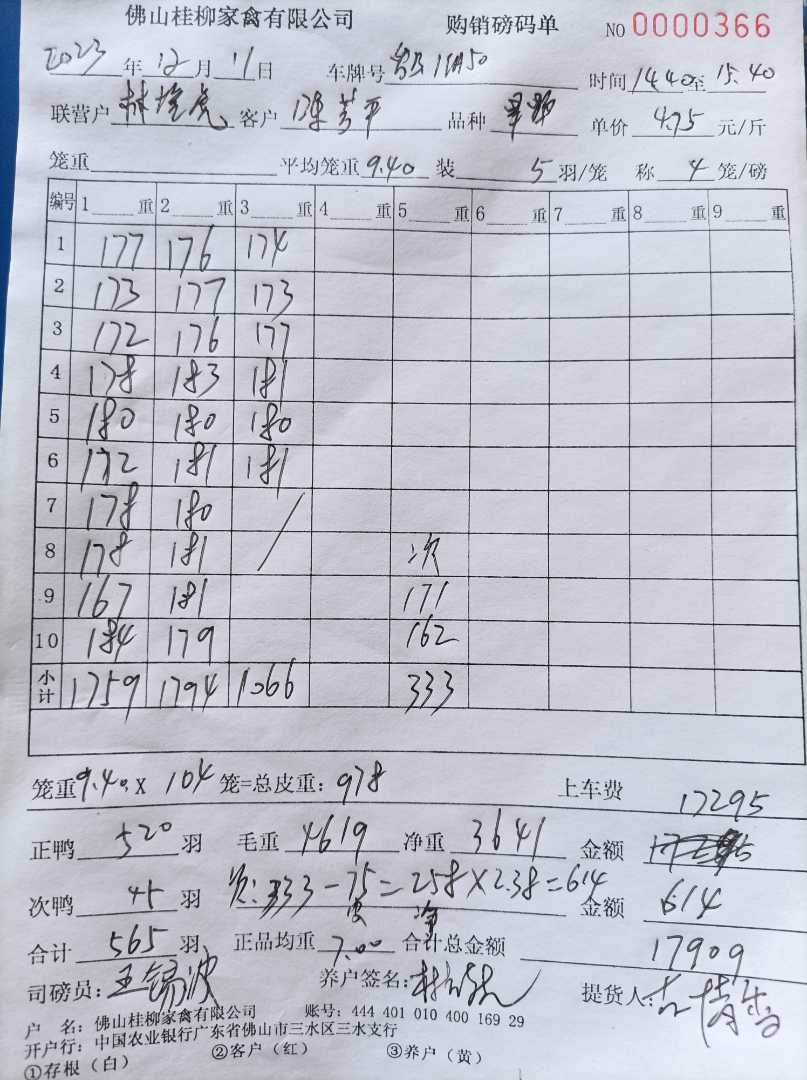 佛山桂柳家禽有限公司 购销磅码单 NO 0000366
2023 年 12 月 11 日 车牌号 时间 1440 至 15.40
联营户 林 虎 客户 陈芳平 品种 单价 4.75 元/斤
笼重 平均笼重 9.40 装 5 羽/笼 称 4 笼/磅
编号 1 重 2 重 3 重 4 重 5 重 6 重 7 重 8 重 9 重
1 177 176 174
2 173 177 173
3 172 176 177
4 178 183 181
5 180 180 180
6 172 181 181
7 178 180
8 178 181 次
9 167 181 171
10 184 179 162
小计 1759 1794 1066 333
笼重 9.40 X 104 笼=总皮重: 978 上车费
17295
正鸭 520 羽 毛重 4619 净重 3641 金额
次鸭 45 羽 次: 333-75=258×2.38=614 金额 614
皮 净
合计 565 羽 正品均重 7.00 合计总金额 17909
司磅员: 王锡波 养户签名: 林 提货人:
户 名: 佛山桂柳家禽有限公司 账号: 444 401 010 400 169 29
开户行: 中国农业银行广东省佛山市三水区三水支行
①存根（白） ②客户（红） ③养户（黄）